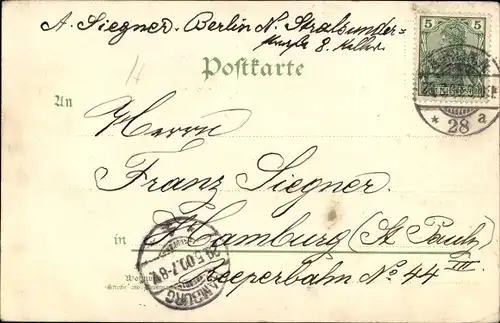 A. Siegner. Berlin N. Stralsunder=
strasse 8. Keller.
5 5
Postkarte
An
Herrn
* 28 a
Franz Siegner.
in Hamburg (St Pauli)
Reeperbahn No 44 III.
HAMBURG
29.5.00.7-8V.